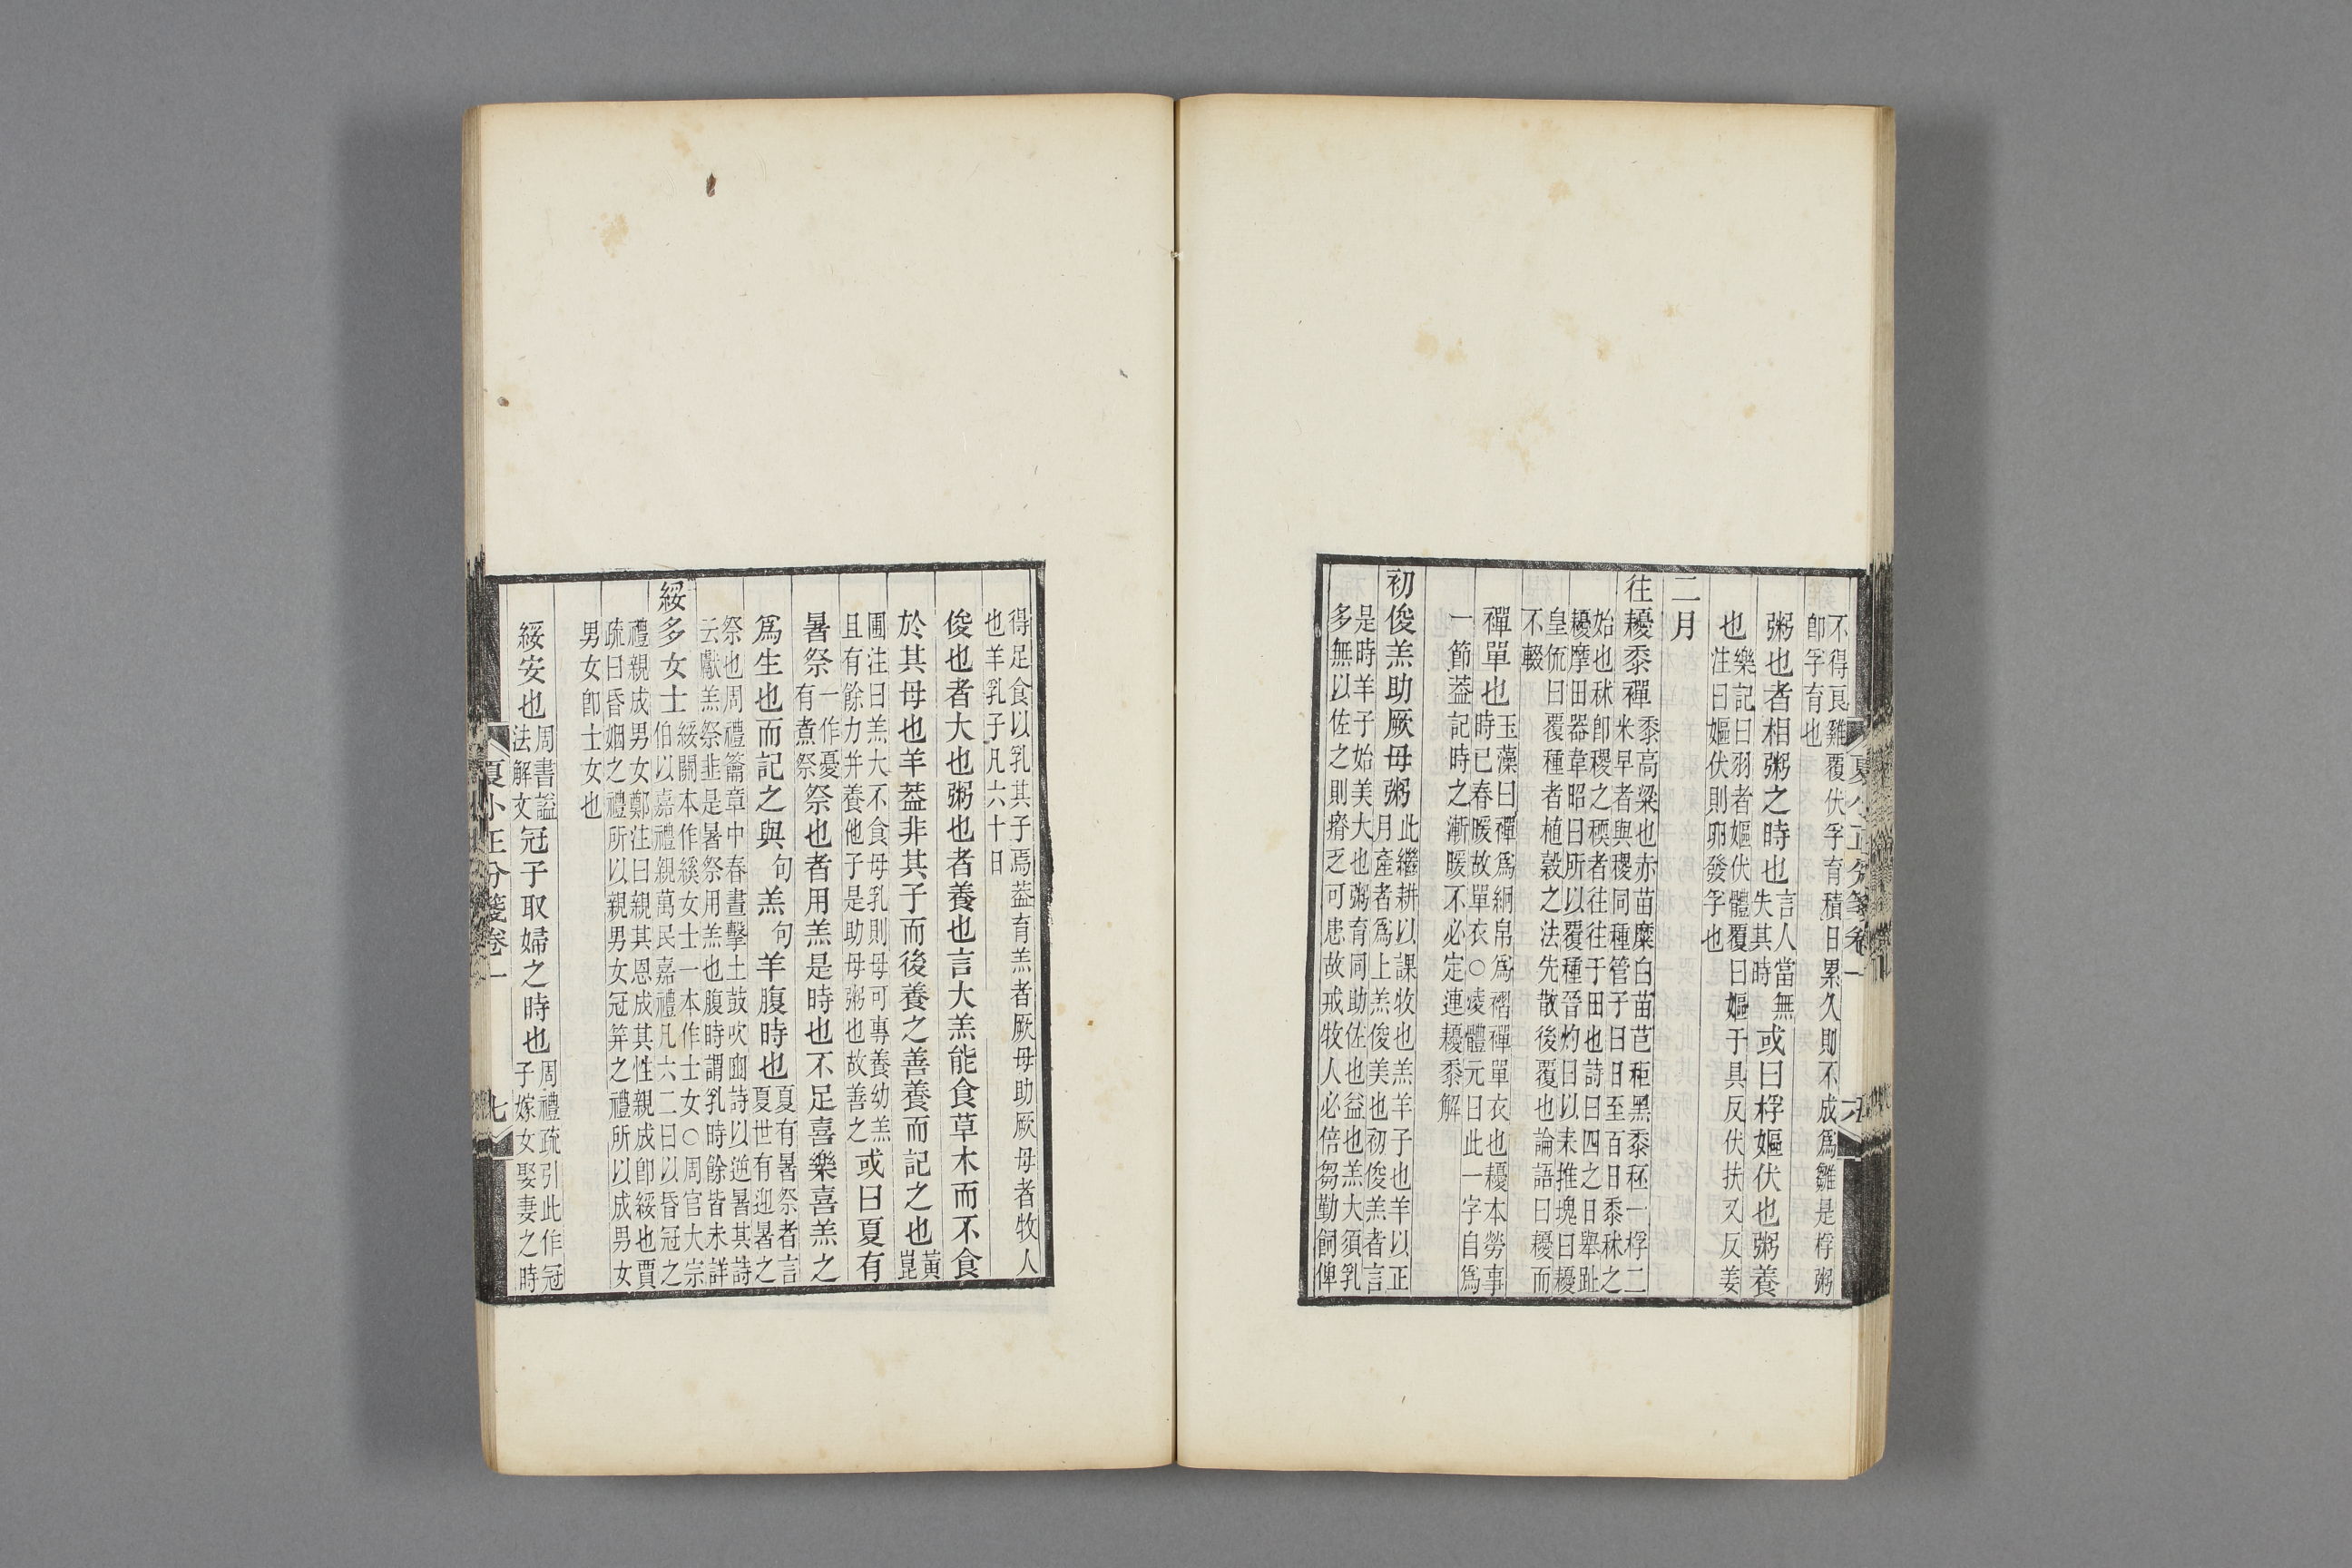 不得良雞覆伏孚育積日累久則不成爲雛是桴粥
卽孚育也
粥也者相粥之時也言人當無失其時或曰桴嫗伏也粥養
也樂記曰羽者嫗伏體覆曰嫗于具反伏扶又反姜
注曰嫗伏則卵發孚也
二月
往耰黍襌黍高粱也亦苗穈白苗芑秬黑黍秠一桴二
米早者與稷同種管子曰日至百日黍秫之
始也秫卽稷之稬者往往于田也詩曰四之日舉趾
耰摩田器韋昭曰所以覆種晉灼曰以耒推塊曰耰
皇侃曰覆種者植穀之法先散後覆也論語曰耰而
不輟
襌單也玉藻曰襌爲絅帛爲褶襌單衣也耰本勞事
時已春暖故單衣○淩體元曰此一字自爲
一節葢記時之漸暖不必定連耰黍解
初俊羔助厥母粥此繼耕以課牧也羔羊子也羊以正
月產者爲上羔俊美也初俊羔者言
是時羊子始美大也粥育同助佐也益也羔大須乳
多無以佐之則瘠乏可患故戒牧人必倍芻勤飼俾
得足食以乳其子焉葢育羔者厥母助厥母者牧人
也羊乳子凡六十日
俊也者大也粥也者養也言大羔能食草木而不食
於其母也羊葢非其子而後養之善養而記之也黃崑
圃注曰羔大不食母乳則母可專養幼羔
且有餘力并養他子是助母粥也故善之或曰夏有
暑祭一作憂有煮祭祭也者用羔是時也不足喜樂喜羔之
爲生也而記之與句羔句羊腹時也夏有暑祭者言
夏世有迎暑之
祭也周禮籥章中春晝擊土鼓吹豳詩以逆暑其詩
云獻羔祭韭是暑祭用羔也腹時謂乳時餘皆未詳
綏多女士綏關本作緩女士一本作士女○周官大宗
伯以嘉禮親萬民嘉禮凡六二曰以昏冠之
禮親成男女鄭注曰親其恩成其性親成卽綏也賈
疏曰昏姻之禮所以親男女冠笄之禮所以成男女
男女卽士女也
綏安也周書謚法解文冠子取婦之時也周禮疏引此作冠
子嫁女娶妻之時
夏小正分箋卷一
七